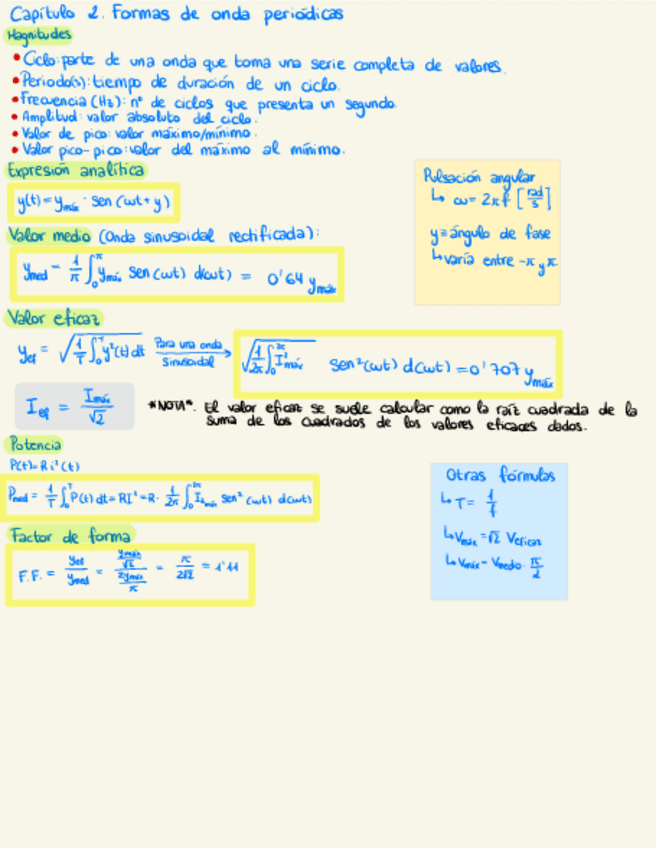 Capítulo 2. Formas de onda periódicas
Magnitudes
• Ciclo: parte de una onda que toma una serie completa de valores.
• Periodo(s): tiempo de duración de un ciclo.
• Frecuencia (Hz): nº de ciclos que presenta un segundo.
• Amplitud: valor absoluto del ciclo.
• Valor de pico: valor máximo/mínimo.
• Valor pico-pico: valor del máximo al mínimo.
Expresión analítica
y(t) = ymáx · sen (ωt + y)
Pulsación angular
↳ ω = 2πf [rad/s]
y = ángulo de fase
↳ varía entre -π y π.
Valor medio (Onda sinusoidal rectificada):
ymed = 1/π ∫₀^π ymáx sen (ωt) d(ωt) = 0'64 ymáx
Valor eficaz
yef = √(1/T ∫₀^T y²(t) dt Para una onda sinusoidal → √(1/2π ∫₀^2π I²máx sen²(ωt) d(ωt) = 0'707 ymáx
Ief = Imáx/√2
*NOTA*. El valor eficaz se suele calcular como la raíz cuadrada de la
suma de los cuadrados de los valores eficaces dados.
Potencia
P(t) = R i²(t)
Pmed = 1/T ∫₀^T P(t) dt = RI² = R · 1/2π ∫₀^2π I²máx sen² (ωt) d(ωt)
Factor de forma
F.F. = yef/ymed = (ymáx/√2)/(2ymáx/π) = π/2√2 = 1'11
Otras fórmulas
↳ T = 1/f
↳ Vmáx = √2 Veficaz
↳ Vmáx = Vmedio · π/2